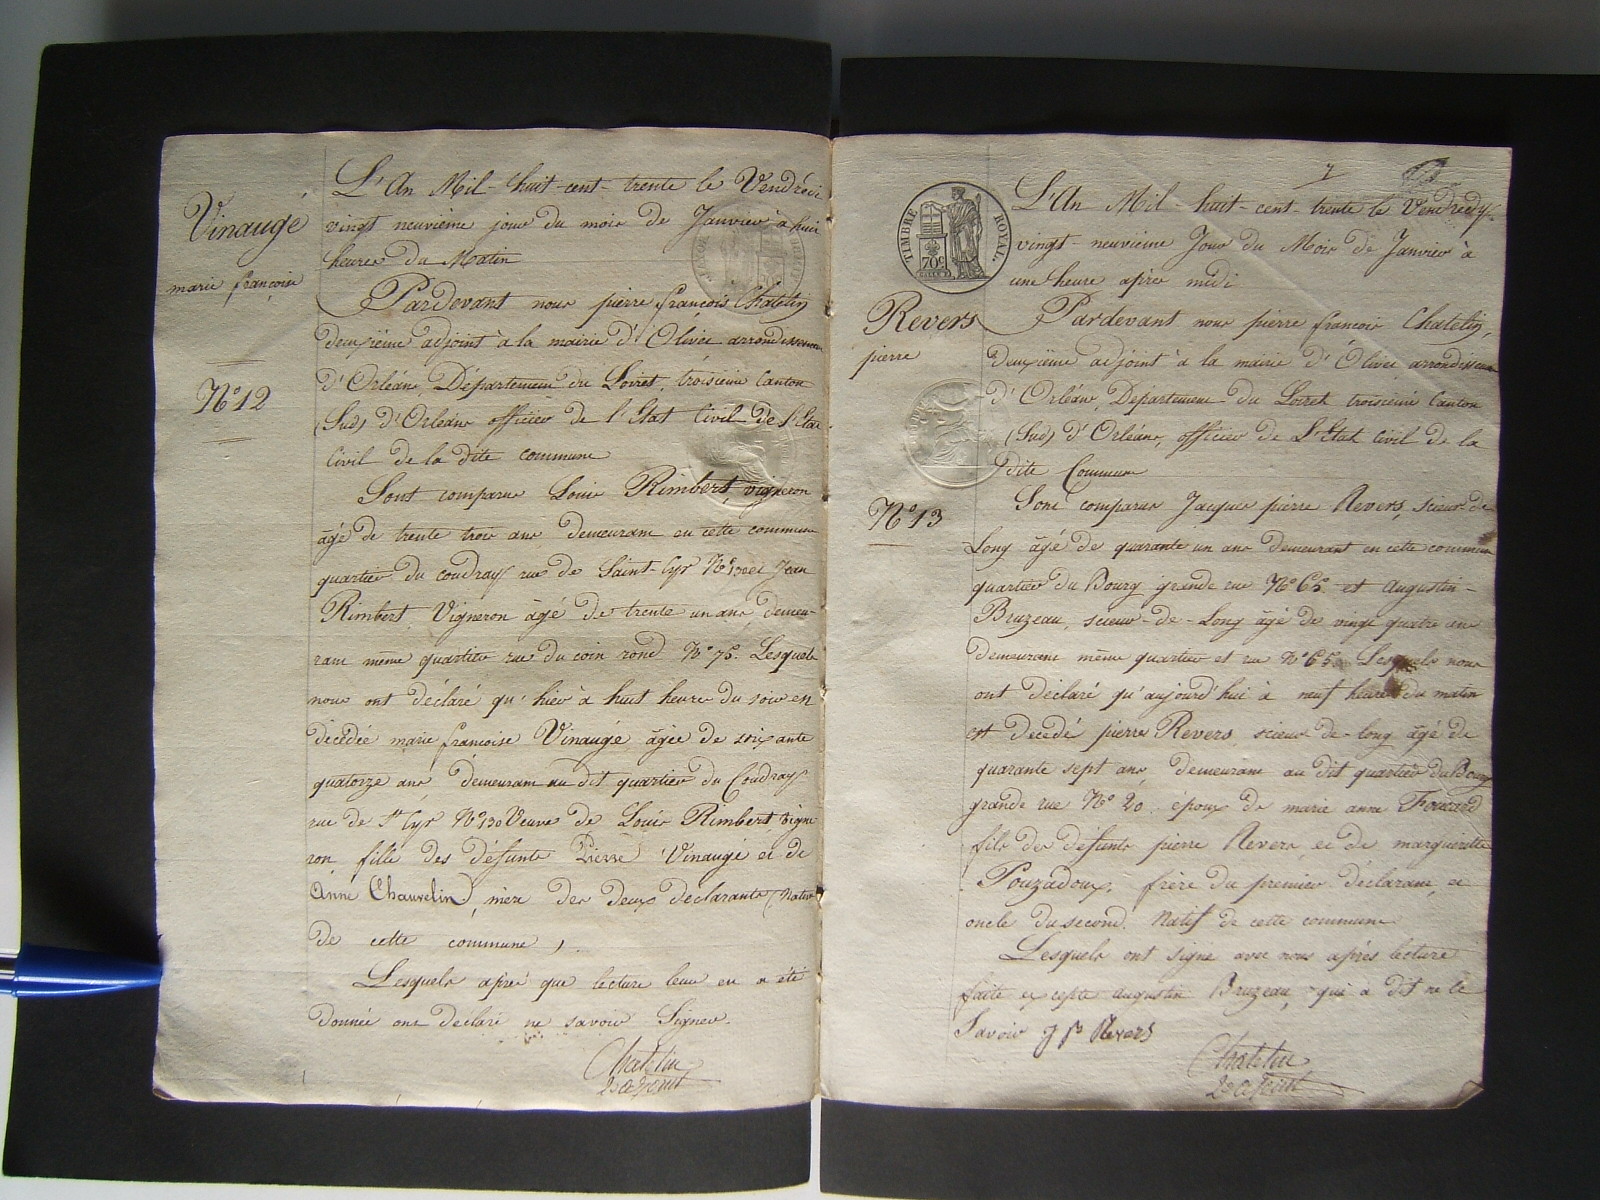 Vinaugé
marie françoise
N° 12
L'An Mil-huit-cent-trente le Vendredi
vingt neuvième jour du mois de Janvier à huit
heures du Matin
Pardevant nous pierre françois Chatelin
deuxième adjoint à la mairie d'Olivet arrondissement
d'Orléans, Département du Loiret, troisième Canton
(Sud) d'Orléans officier de l'Etat Civil de l'Etat
Civil de la dite commune
Sont comparus Louis Rimbert, vigneron
âgé de trente trois ans demeurant en cette commune
quartier du coudray rue de Saint-Cyr N° 130 et Jean
Rimbert, Vigneron âgé de trente un ans, demeu-
rant même quartier rue du coin rond N° 75. Lesquels
nous ont déclaré qu'hier à huit heures du soir est
décédée marie françoise Vinaugé âgée de soixante
quatorze ans demeurant au dit quartier du Coudray
rue de St Cyr N° 130 Veuve de Louis Rimbert vigne
ron fille des défunts Pierre Vinaugé et de
Anne Chauvelin, mère des deux déclarants, Native
de cette commune,
Lesquels après que lecture leur en a été
donnée ont déclaré ne savoir Signer.
Chatelin
2e adjoint
7
TIMBRE ROYAL.
70c
Revers
pierre
N° 13
L'An Mil-huit-cent-trente le Vendredy
vingt-neuvième Jour du Mois de Janvier à
une heure après midi
Pardevant nous pierre françois Chatelin,
deuxième adjoint à la mairie d'Olivet arrondissement
d'Orléans, Département du Loiret troisième Canton
(Sud) d'Orléans, officier de L'Etat Civil de la
dite Commune
Sont comparus Jacques pierre Revers, scieur de
Long âgé de quarante un ans demeurant en cette commune
quartier du Bourg grande rue N° 65. et Augustin-
Bruzeau, scieur-de-Long âgé de vingt quatre ans
demeurant même quartier et rue N° 65. Lesquels nous
ont déclaré qu'aujourd'hui à neuf heures du matin
est décédé pierre Revers, scieur de-long âgé de
quarante sept ans, demeurant au dit quartier du Bourg
grande rue N° 20. époux de marie anne Foucard
fils des défunts pierre Revers et de margueritte
Pouzadoux, frère du premier déclarant, et
oncle du second. Natif de cette commune
Lesquels ont signé avec nous après lecture
faite excepté augustin Bruzeau, qui a dit ne le
Savoir J P Revers
Chatelin
2e adjoint